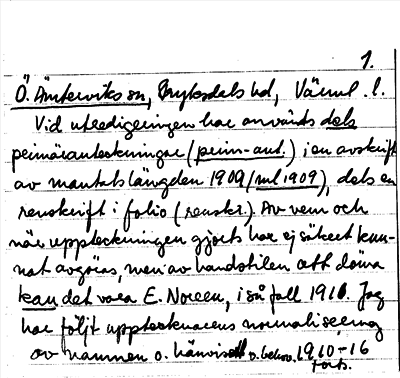 1.
Ö. Ämterviks sn, Fryksdals hd, Värml. l.
Vid utredigeringen har använts dels
primäranteckningar (prim-ant.) i en avskrift
av mantalslängden 1909 (ml 1909), dels en
renskrift i folio (renskr.). Av vem och
när uppteckningen gjorts har ej säkert kun-
nat avgöras, men av handstilen att döma
kan det vara E. Noreen, i så fall 1910. Jag
har följt upptecknarens normalisering
av namnen o. hänvisn o. bebos. 1910-16
Forts.